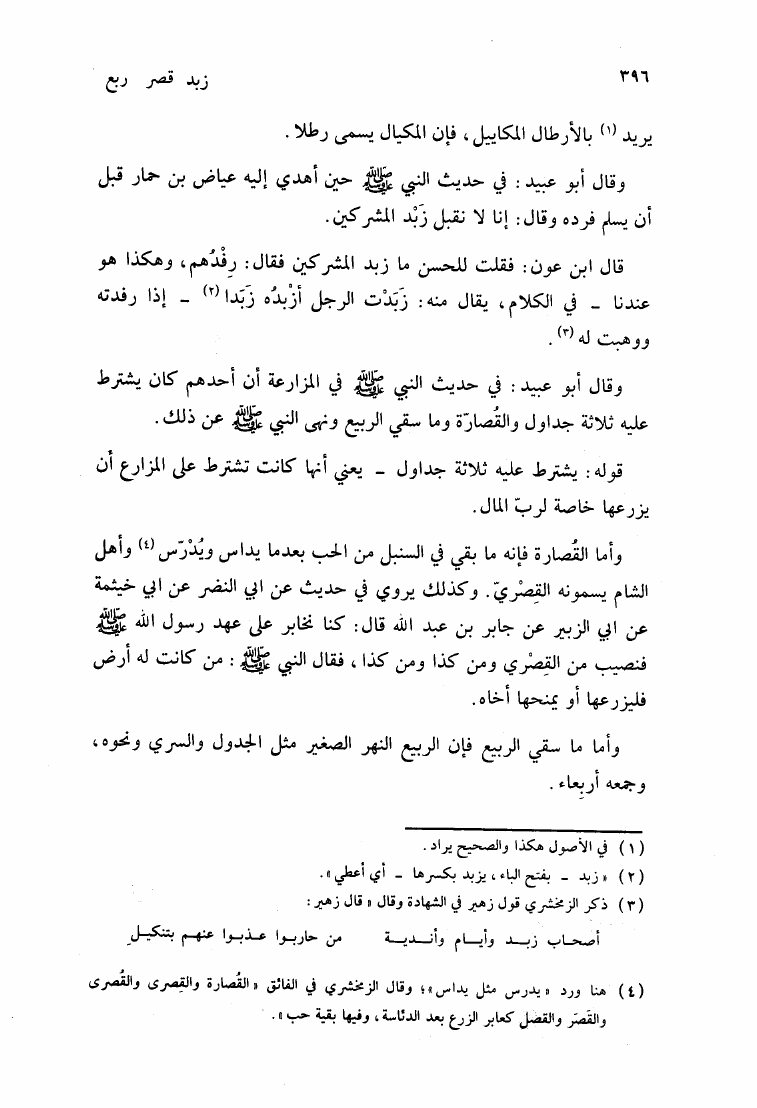 ٣٩٦ زبد قصر ربع
يريد (١) بالأرطال المكاييل، فإن المكيال يسمى رطلا.
وقال أبو عبيد: في حديث النبي ﷺ حين أهدي إليه عياض بن حمار قبل
أن يسلم فرده وقال: إنا لا نقبل زَبْد المشركين.
قال ابن عون: فقلت للحسن ما زبد المشركين فقال: رِفْدُهم، وهكذا هو
عندنا - في الكلام، يقال منه: زَبَدْت الرجل أزْبِدُه زَبَدا (٢) - إذا رفدته
ووهبت له (٣).
وقال أبو عبيد: في حديث النبي ﷺ في المزارعة أن أحدهم كان يشترط
عليه ثلاثة جداول والقُصارَة وما سقي الربيع ونهى النبي ﷺ عن ذلك.
قوله: يشترط عليه ثلاثة جداول - يعني أنها كانت تشترط على المزارع أن
يزرعها خاصة لربّ المال.
وأما القُصارة فإنه ما بقي في السنبل من الحب بعدما يداس ويُدْرَس (٤) وأهل
الشام يسمونه القِصْريّ. وكذلك يروي في حديث عن ابي النضر عن ابي خيثمة
عن ابي الزبير عن جابر بن عبد الله قال: كنا نخابر على عهد رسول الله ﷺ
فنصيب من القِصْري ومن كذا ومن كذا، فقال النبي ﷺ: من كانت له أرض
فليزرعها أو يمنحها أخاه.
وأما ما سقي الربيع فإن الربيع النهر الصغير مثل الجدول والسري ونحوه،
وجمعه أربِعاء.
(١) في الأصول هكذا والصحيح يراد.
(٢) «زبد - بفتح الباء، يزبد بكسرها - أي أعطي».
(٣) ذكر الزمخشري قول زهير في الشهادة وقال «قال زهير:
أصحاب زبد وأيام وأندية من حاربوا عذبوا عنهم بتنكيلِ
(٤) هنا ورد «يدرس مثل يداس»؛ وقال الزمخشري في الفائق «القُصارة والقِصرى والقُصرى
والقَصَر والقصل كعابر الزرع بعد الدئاسة، وفيها بقية حب».